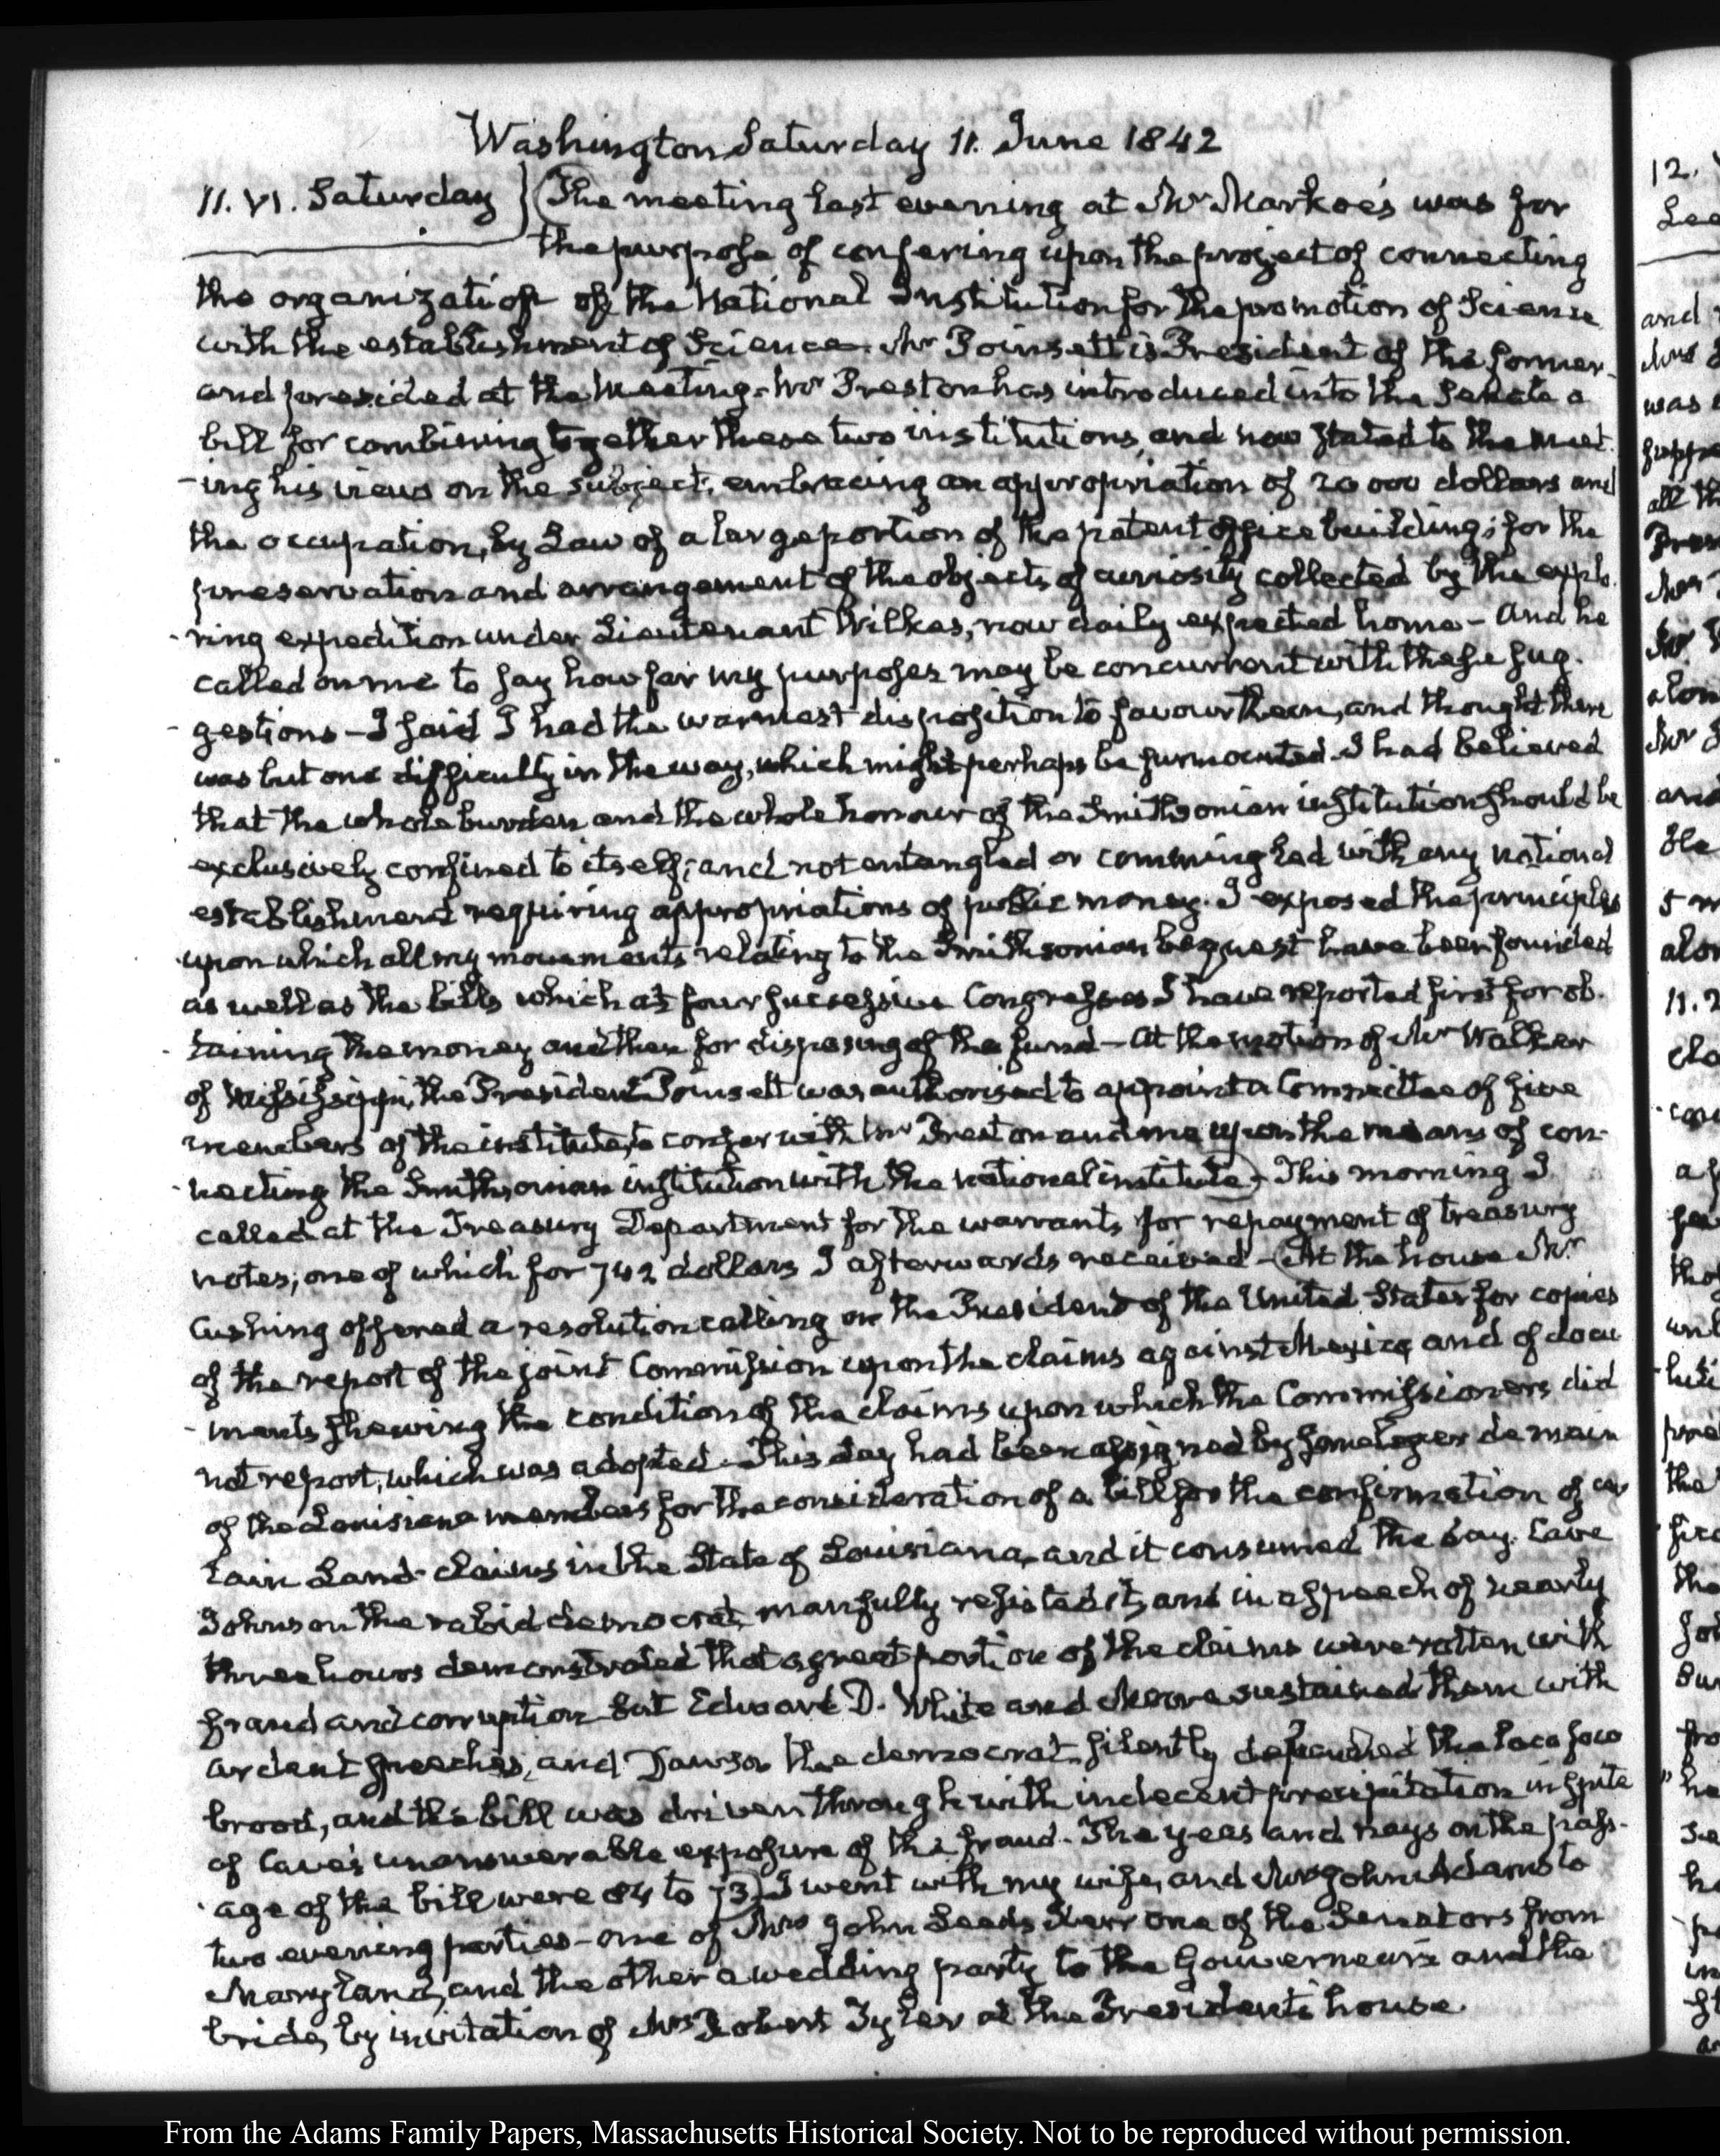 Washington Saturday 11. June 1842
11. VI. Saturday } (The meeting last evening at Mr Markoe's was for
the purpose of confering upon the project of connecting
the organization of the National Institution for the promotion of Science
with the establishment of Science. Mr Poinsett is President of the former
and presided at the Meeting. Mr Preston has introduced into the Senate a
bill for combining together these two institutions, and now stated to the meet-
-ing his views on the subject; embracing an appropriation of 20 000 dollars and
the occupation, by Law of a large portion of the patent office building; for the
preservation and arrangement of the objects of curiosity collected by the explo-
-ring expedition under Lieutenant Wilkes, now daily expected home - And he
called on me to say how far my purposes may be concurrent with these sug-
-gestions - I said I had the warmest disposition to favour them, and thought there
was but one difficulty in the way, which might perhaps be surmounted. I had believed
that the whole burden and the whole honour of the Smithsonian institution should be
exclusively confined to itself; and not entangled or commingled with any national
establishment requiring appropriations of public money. I exposed the principles
upon which all my movements relating to the Smithsonian bequest have been founded
as well as the bills which at four successive Congresses I have reported first for ob-
-taining the money and then for disposing of the fund - At the motion of Mr Walker
of Mississippi, the President Poinsett was authorised to appoint a Committee of five
members of the institute, to confer with Mr Preston and me upon the means of con-
-necting the Smithsonian institution with the national institute) - This morning I
called at the Treasury Department for the warrants for repayment of treasury
notes; one of which for 742 dollars I afterwards received - (At the house Mr
Cushing offered a resolution calling on the President of the United States for copies
of the report of the joint Commission upon the claims against Mexico and of docu
-ments shewing the condition of the claims upon which the Commissioners did
not report, which was adopted. This day had been assigned by some legerdemain
of the Louisiana members for the consideration of a bill for the confirmation of cer
tain Land-claims in the State of Louisiana, and it consumed the day. Cave
Johnson the rabid democrat, manfully resisted it, and in a speech of nearly
three hours demonstrated that a great portion of the claims were rotten with
fraud and corruption but Edward D. White and Moore sustained them with
ardent speeches, and Dawson the democrat silently defended the loco foco
brood, and the bill was driven through with indecent precipitation in spite
of Cave's unanswerable exposure of the fraud. The yeas and nays on the pass-
age of the bill were 84 to 73) I went with my wife, and Mrs John Adams to
two evening parties - one of Mrs John Leeds Kerr one of the Senators from
Maryland, and the other a wedding party to the Gouverneurs and the
bride, by invitation of Mrs Robert Tyler at the President's house.
12.
and
was
all th
and
He
alon
11. 2
the
From the Adams Family Papers, Massachusetts Historical Society. Not to be reproduced without permission.